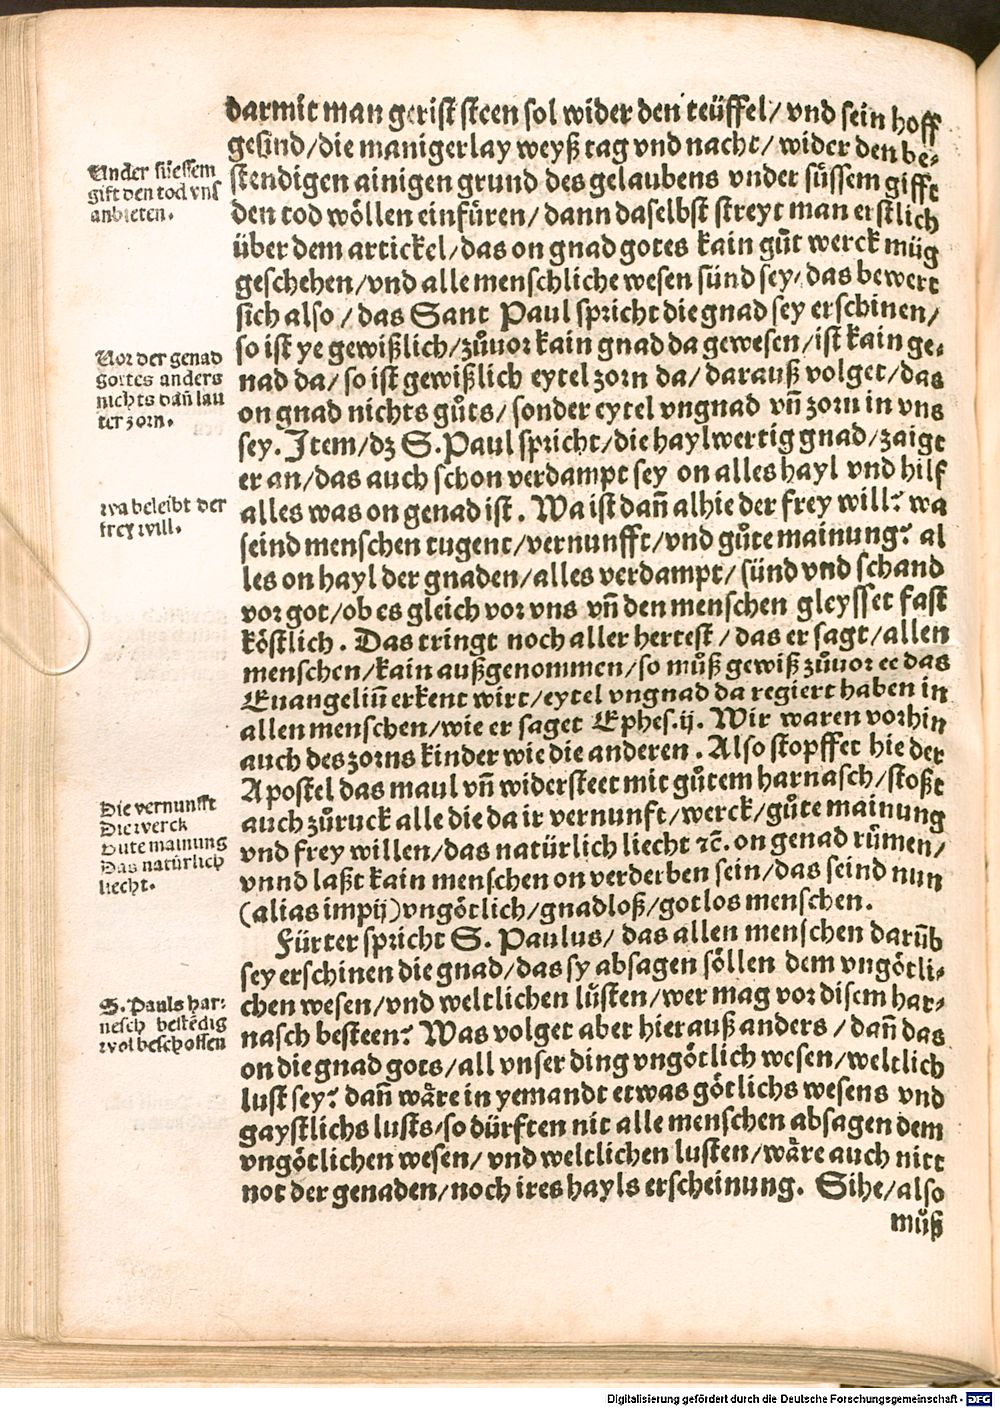 darmit man gerist steen sol wider den teüffel/ vnd sein hoff
gesind/die manigerlay weyß tag vnd nacht/ wider den be⸗
stendigen ainigen grund des gelaubens vnder süssem gifft
den tod wöllen einfüren/ dann daselbst streyt man erstlich
über dem artickel/das on gnad gotes kain gůt werck müg
geschehen/vnd alle menschliche wesen sünd sey/ das bewert
sich also / das Sant Paul spricht die gnad sey erschinen/
so ist ye gewißlich/zůuor kain gnad da gewesen/ist kain ge⸗
nad da/ so ist gewißlich eytel zorn da/ darauß volget/ das
on gnad nichts gůts/ sonder eytel vngnad vñ zorn in vns
sey. Item/dz S.Paul spricht/die haylwertig gnad/zaigt
er an/das auch schon verdampt sey on alles hayl vnd hilf
alles was on genad ist. Wa ist dañ alhie der frey will? wa
seind menschen tugent/vernunfft/vnd gůte mainung? al
les on hayl der gnaden/alles verdampt/ sünd vnd schand
vor got/ob es gleich vor vns vñ den menschen gleysset fast
köstlich. Das tringt noch aller hertest / das er sagt/allen
menschen/kain außgenommen/so můß gewiß zůuor ee das
Euangeliũ erkent wirt/eytel vngnad da regiert haben in
allen menschen/wie er saget Ephes.ij. Wir waren vorhin
auch des zorns kinder wie die anderen. Also stopffet hie der
Apostel das maul vñ widersteet mit gůtem harnasch/stoßt
auch zůruck alle die da ir vernunft/werck/gůte mainung
vnd frey willen/das natürlich liecht ꝛc̃. on genad růmen/
vnnd laßt kain menschen on verderben sein/das seind nun
(alias impij)vngötlich/gnadloß/gotlos menschen.
Fürter spricht S. Paulus/ das allen menschen darũb
sey erschinen die gnad/das sy absagen söllen dem vngötli⸗
chen wesen/vnd weltlichen lüsten/wer mag vor disem har⸗
nasch besteen? Was volget aber hierauß anders / dañ das
on die gnad gots/all vnser ding vngötlich wesen/weltlich
lust sey? dañ wäre in yemandt etwas götlichs wesens vnd
gaystlichs lusts/so dürften nit alle menschen absagen dem
vngötlichen wesen/ vnd weltlichen lusten/wäre auch nitt
not der genaden/noch ires hayls erscheinung. Sihe/also
můß
Vnder süessem
gift den tod vns
anbieten.
Vor der genad
gottes anders
nichts dañ lau
ter zorn.
wa beleibt der
frey will.
Die vernunfft
Die werck
Gute mainung
Das natürlich
liecht.
S. Pauls har⸗
nesch bestẽdig
wol beschossen
Digitalisierung gefördert durch die Deutsche Forschungsgemeinschaft - DFG